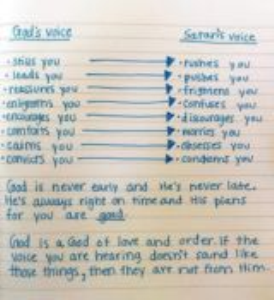 God's voice Satan's voice
• stills you • rushes you
• leads you • pushes you
• reassures you • frightens you
• enlightens you • confuses you
• encourages you • discourages you
• comforts you • worries you
• calms you • obsesses you
• convicts you • condemns you
God is never early and He's never late.
He's always right on time and His plans
for you are good.
God is a God of love and order. If the
voice you are hearing doesn't sound like
those things, then they are not from Him.